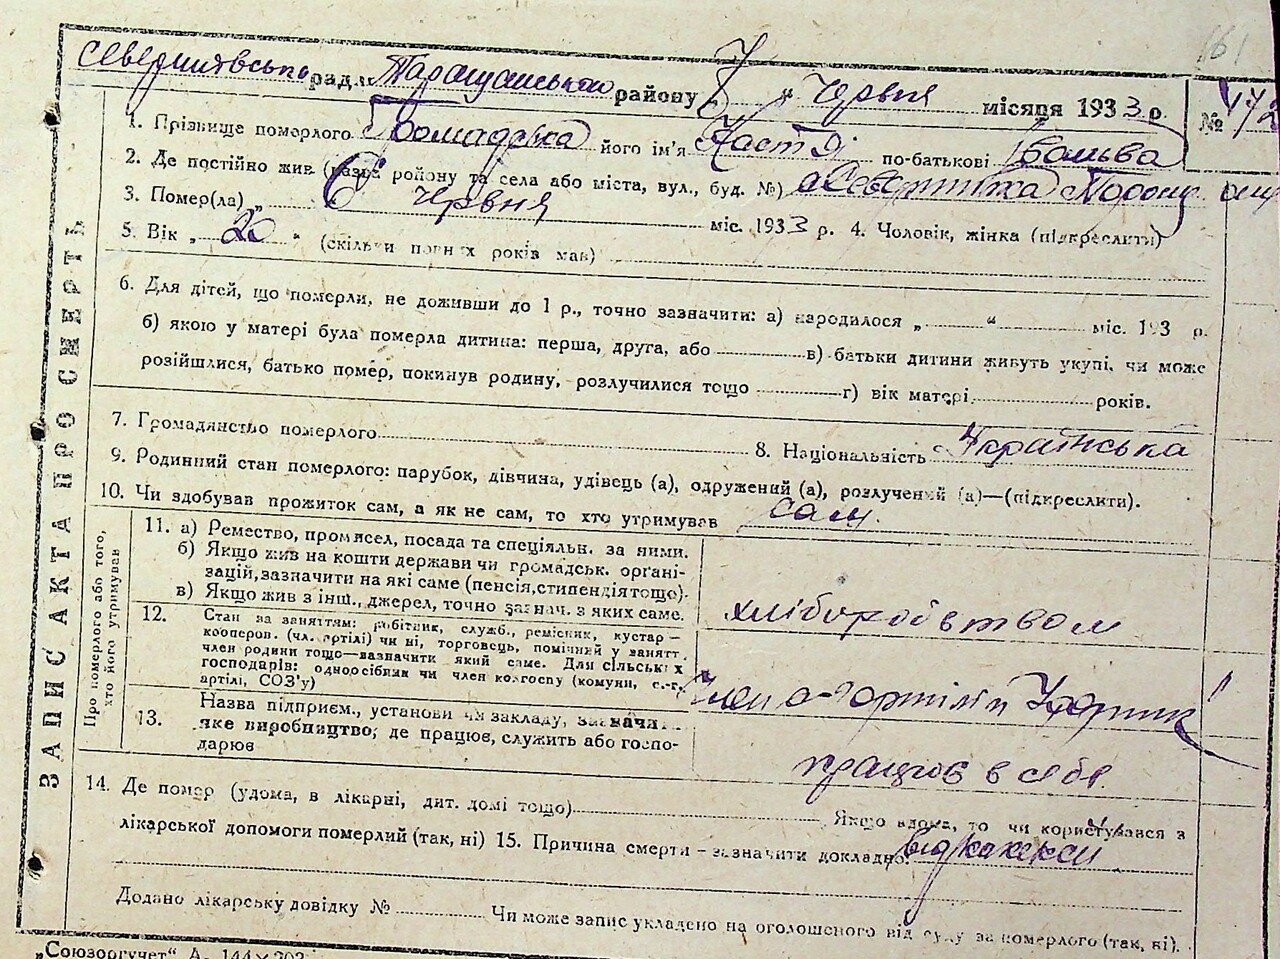 161
Северинівсько ради Таращанського району 7 " Червня місяця 1933 р. № 172
1. Прізвище померлого Громадська його ім'я Настя по-батькові
2. Де постійно жив (назва району та села або міста, вул., буд. №) с Северинівка
3. Помер(ла) „ 6 Червня міс. 1933 р. 4. Чоловік, жінка (підкреслити)
5. Вік „ 20 " (скільки повних років мав)
6. Для дітей, що померли, не доживши до 1 р., точно зазначити: а) народилося „ “ міс. 193 р.
б) якою у матері була померла дитина: перша, друга, або в) батьки дитини живуть укупі, чи може
розійшлися, батько помер, покинув родину, розлучилися тощо г) вік матері років.
7. Громадянство померлого 8. Національність Українська
9. Родинний стан померлого: парубок, дівчина, удівець (а), одружений (а), розлучений (а)—(підкреслити).
10. Чи здобував прожиток сам, а як не сам, то хто утримував сам.
ЗАПИС АКТА ПРО СМЕРТЬ
Про померлого або того,
хто його утримував
11. а) Ремество, промисел, посада та спеціяльн. за ними.
б) Якщо жив на кошти держави чи громадськ. органі-
зацій, зазначити на які саме (пенсія, стипендія тощо).
в) Якщо жив з інш., джерел, точно зазнач. з яких саме.
хліборобством
12. Стан за заняттям: робітник, служб., ремісник, кустар—
кооперов. (чл. артілі) чи ні, торговець, помічний у занятт.
член родини тощо—зазначити який саме. Для сільських
господарів: одноосібник чи член колгоспу (комуни, с.-г.
артілі, СОЗ'у)
13. Назва підприєм., установи чи закладу, зазначити
яке виробництво, де працює, служить або госпо-
дарює
працюв в себе.
14. Де помер (удома, в лікарні, дит. домі тощо) Якщо вдома, то чи користувався з
лікарської допомоги померлий (так, ні) 15. Причина смерти – зазначити докладно: від кахексії
Додано лікарську довідку № Чи може запис укладено на оголошеного від суду за померлого (так, ні).
„Союзоргучет“ А. 144×203